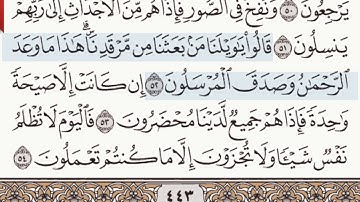 يَرْجِعُونَ ٥٠ وَنُفِخَ فِي الصُّورِ فَإِذَا هُم مِّنَ الْأَجْدَاثِ إِلَىٰ رَبِّهِمْ
يَنسِلُونَ ٥١ قَالُوا يَا وَيْلَنَا مَن بَعَثَنَا مِن مَّرْقَدِنَا ۜ هَٰذَا مَا وَعَدَ
الرَّحْمَٰنُ وَصَدَقَ الْمُرْسَلُونَ ٥٢ إِن كَانَتْ إِلَّا صَيْحَةً
وَاحِدَةً فَإِذَا هُمْ جَمِيعٌ لَّدَيْنَا مُحْضَرُونَ ٥٣ فَالْيَوْمَ لَا تُظْلَمُ
نَفْسٌ شَيْئًا وَلَا تُجْزَوْنَ إِلَّا مَا كُنتُمْ تَعْمَلُونَ ٥٤
٤٤٣